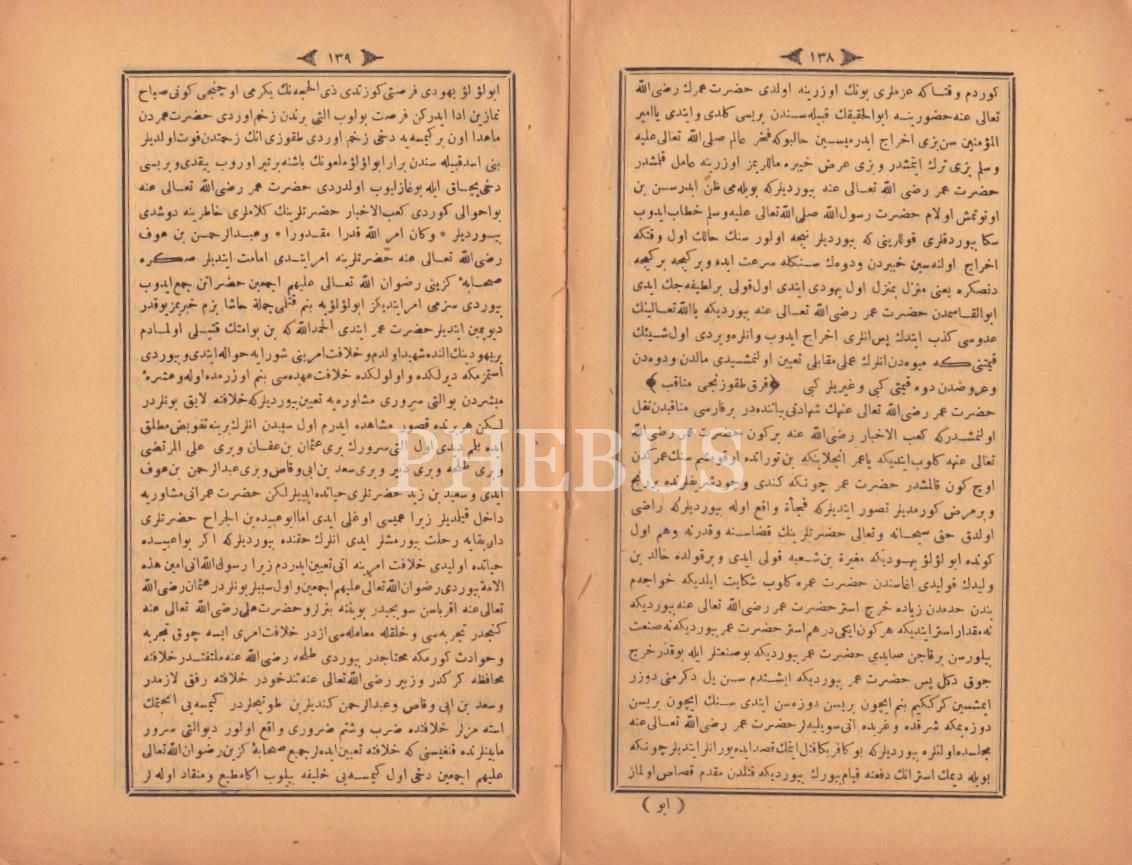 ١٣٨
كوردم وقتاكه عزملرى بونك اوزرينه اولدى حضرت عمرك رضى الله
تعالى عنه حضورينه ابوالحقيقك قبيله سندن بريسى كلدى وايتدى ياامير
المؤمنين سن بزى اخراج ايدرميسين حالبوكه فخر عالم صلى الله تعالى عليه
وسلم بزى ترك ايتمشدر وبزى عرض خيبره ماللريمز اوزرينه عامل قلمشدر
حضرت عمر رضى الله تعالى عنه بيورديلركه بويله مى ظن ايدرسن بن
اونوتمش اولام حضرت رسول الله صلى الله تعالى عليه وسلم خطاب ايدوب
سكا بيوردقلرى قوللرينى كه بيورديلر نيجه اولور سنك حالك اول وقتكه
اخراج اولنه سين خيبردن ودوه ك سنكله سرعت ايده وبركيجه بركيجه
دنصكره يعنى منزل بمنزل اول يهودى ايتدى اول قولى برلطيفه جك ايدى
ابوالقاسمدن حضرت عمر رضى الله تعالى عنه بيورديكه ياالله تعالينك
عدوسى كذب ايتدك پس انلرى اخراج ايدوب وانلره ويردى اول شيئك
قيمتنى كه ميوه دن انلرك عملى مقابلى تعيين اولنمشيدى مالدن ودوه دن
وعروضدن دوه قيمتى كبى وغيريلر كبى ﴿ قرق طقوزنجى مناقب ﴾
حضرت عمر رضى الله تعالى عنهك شهادتى بياننده در بر فارسى مناقبدن نقل
اولنمشدركه كعب الاخبار رضى الله عنه بركون حضرت عمر رضى الله
تعالى عنهه كلوب ايتديكه ياعمر انجلاينكه بن توراتده اوقومشم سنك عمركدن
اوچ كون قالمشدر حضرت عمر چونكه كندى وجود شريفلرنده بررنج
وبرمرض كورمديلر تصور ايتديلركه فجأة واقع اوله بيورديلركه راضى
اولدق حق سبحانه وتعالى حضرتلرينك قضاسنه وقدرنه وهم اول
كونده ابولؤلؤ يهوديكه مغيرة بن شعبه قولى ايدى وبرقولده خالد بن
وليدك قوليدى اغاسندن حضرت عمره كلوب شكايت ايلديكه خواجه م
بندن حدمدن زياده خرج استر حضرت عمر رضى الله تعالى عنه بيورديكه
نه مقدار استر ايتديكه هركون ايكى درهم استر حضرت عمر بيورديكه نه صنعت
بيلورسن برقاجن صايدى حضرت عمر بيورديكه بوصنعتلر ايله بوقدر خرج
چوق دكل پس حضرت عمر بيورديكه ايشتدم سن يل دكرمنى دوزر
ايمشسين كرككيم بنم ايچون بريسن دوزه سن ايتدى سنك ايچون بريسن
دوزه يمكه شرقده وغربده انى سويليه لر حضرت عمر رضى الله تعالى عنه
مجلسده اولنلره بيورديلركه بوكافر بكا قتل ايتمك قصد ايده يور انلر ايتديلر چونكه
بويله ديمك استر انك دفعنه قيام بيورك بيورديكه قتلدن مقدم قصاص اولماز
( ابو )
١٣٩
ابولؤلؤ يهودى فرصتى كوزتدى ذى الحجه نك يكرمى اوچنجى كونى صباح
نمازين ادا ايدركن فرصت بولوب التى يرندن زخم اوردى حضرت عمردن
ماعدا اون بر كيمسه يه دخى زخم اوردى طقوزى انك زحمتندن فوت اولديلر
بنى اسد قبيله سندن برار ابولؤلؤ ملعونك باشنه برتير اوروب ييقدى وبريسى
دخى بچاق ايله بوغازليوب اولدردى حضرت عمر رضى الله تعالى عنه
بواحوالى كوردى كعب الاخبار حضرتلرينك كلاملرى خاطرينه دوشدى
بيورديلر * وكان امر الله قدرا مقدورا * وعبدالرحمن بن عوف
رضى الله تعالى عنه حضرتلرينه امر ايتدى امامت ايتديلر صكره
صحابۀ كزينى رضوان الله تعالى عليهم اجمعين حضراتن جمع ايدوب
بيوردى سزمى امر ايتديكز ابولؤلؤيه بنم قتلمى جملة حاشا بزم خبريمز يوقدر
ديو يمين ايتديلر حضرت عمر ايتدى الحمدالله كه بن بوامتك قتيلى اولمادم
بر يهودينك النده شهيد اولدم وخلافت امرينى شورايه حواله ايتدى وبيوردى
استمزمكه ديرلكده واولولكده خلافت عهده سى بنم اوزرمده اوله وعشرۀ
مبشره دن بوالتى سرورى مشاوره يه تعيين بيورديلركه خلافته لايق بونلردر
لكن هر برنده قصور مشاهده ايدرم اول سببدن انلرك برينه تفويض مطلق
ايده بيلم ديدى اول التى سرورك برى عثمان بن عفان وبرى على المرتضى
وبرى طلحه وبرى زبير وبرى سعد بن ابى وقاص وبرى عبدالرحمن بن عوف
ايدى وسعيد بن زيد حضرتلرى حياتده ايديلر لكن حضرت عمر انى مشاوريه
داخل قيلمديلر زيرا عميسى اوغلى ايدى اما ابوعبيده بن الجراح حضرتلرى
داربقايه رحلت بيورمشلر ايدى انلرك حقنده بيورديلركه اكر بواعبيده
حياتده اوليدى خلافت امرينه انى تعيين ايدردم زيرا رسول الله انى امين هذه
الامة بيوردى رضوان الله تعالى عليهم اجمعين واول سببلر بونلردر عثمان رضى الله
تعالى عنه اقرباسن سويجيدر بويفنه بتزلر وحضرت على رضى الله تعالى عنه
كنجدر تجربه سى وخلقله معامله سى ازدر خلافت امرى ايسه چوق تجربه
وحوادث كورمكه محتاجدر بيوردى طلحه رضى الله عنه ملتفتدر خلافته
محافظه كركدر وزبير رضى الله تعالى عنه تندخودر خلافته رفق لازمدر
وسعد بن ابى وقاص وعبدالرحمن كنديلرين طوتيجلردر كيمسه يى انجتمك
استه مزلر خلافتده ضرب وشتم ضرورى واقع اولور ديو التى سرور
مابينلرنده قنغيسنى كه خلافته تعيين ايده لر جميع صحابۀ كزين رضوان الله تعالى
عليهم اجمعين دخى اول كيمسه يى خليفه بيلوب اكا مطيع ومنقاد اوله لر
PHEBUS